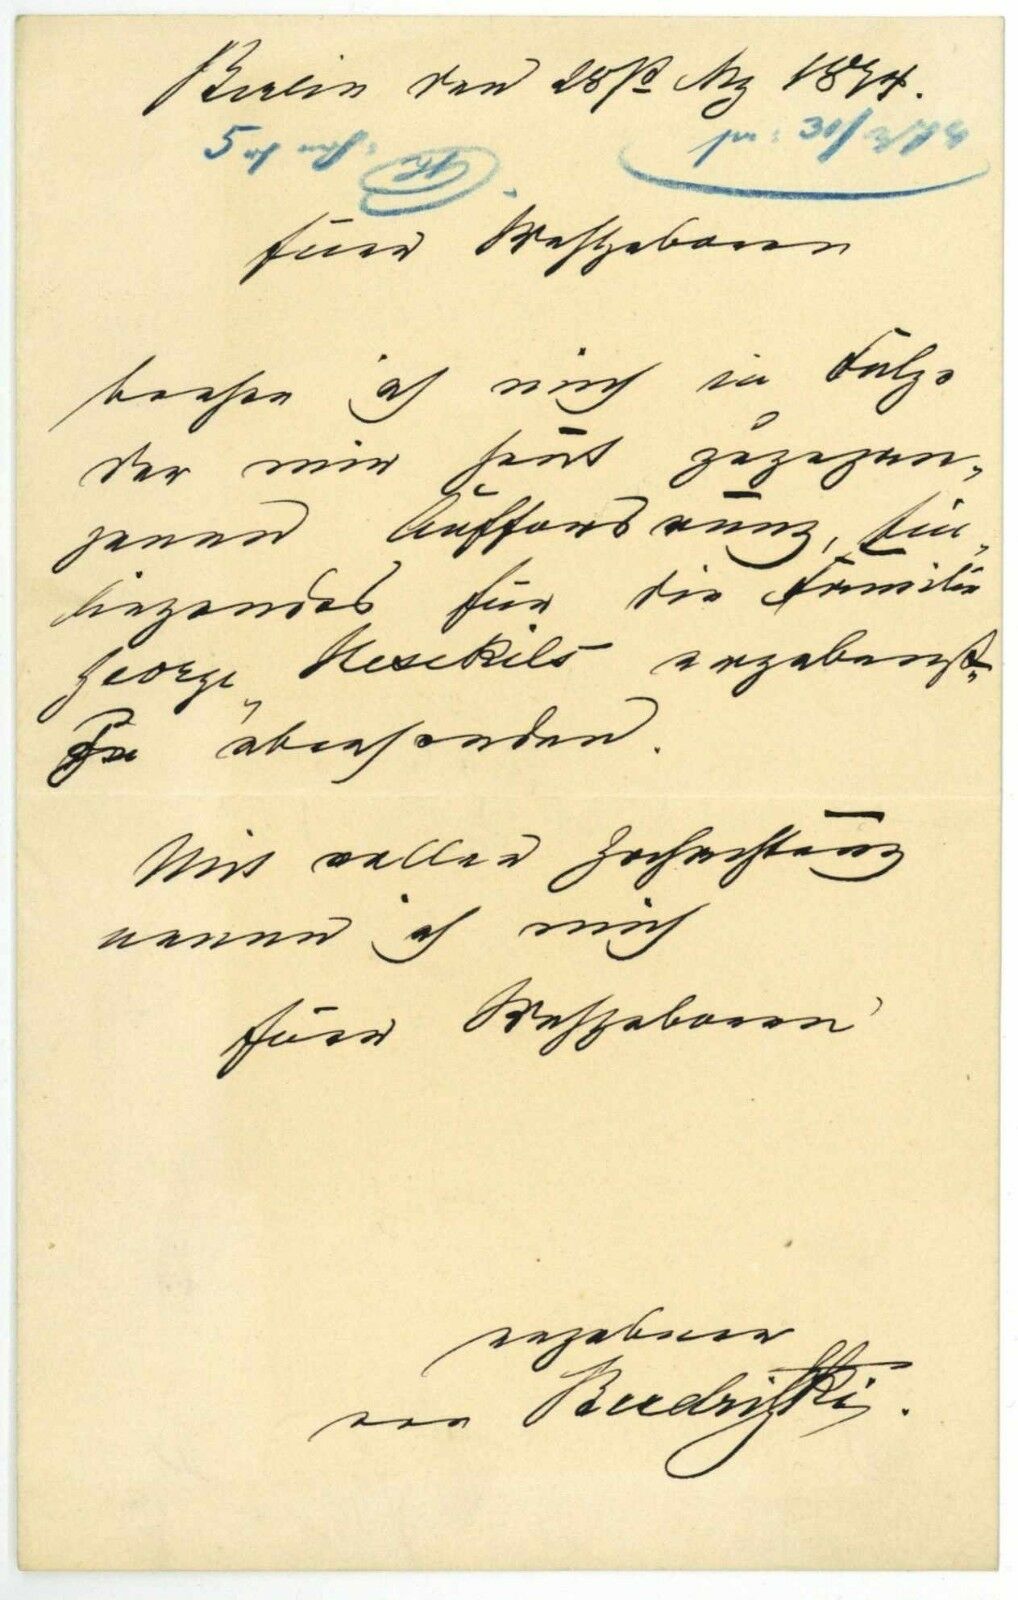 Berlin den 28st Mz 1874.
Euer Wohlgeboren
beehre ich mich in Folge
der mir heut zugegan-
genen Aufforderung, Ein-
liegendes für die Familie
George Hesekiels ergebenst
übersenden.
Mit voller Hochachtung
nenne ich mich
Euer Wohlgeboren
ergebener
von Budritzki.